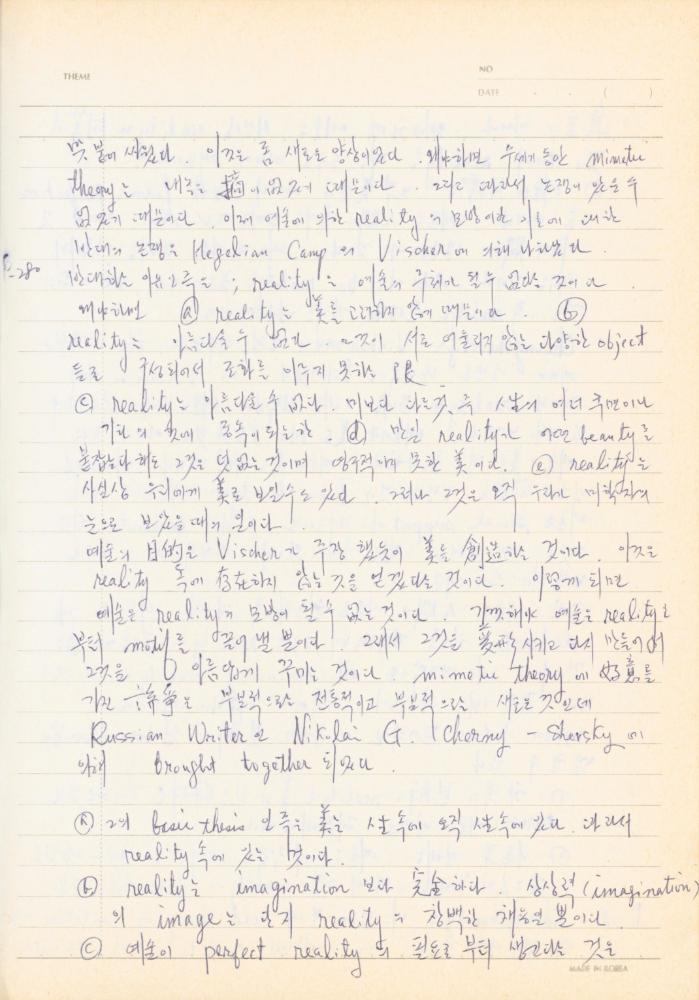 THEME
NO
DATE . . ( )
붙여 씌웠다. 이것은 좀 새로운 양상이었다. 왜냐하면 수세기 동안 mimetic
theory는 내측은 이 없었기 때문이다. 그리고 따라서 논쟁이 있을 수
없었기 때문이다. 이제 예술에 의한 reality의 모방이란 이론에 대한
반대의 논쟁은 Hegelian Camp의 Vischer에 의해 나타났다.
P-280
반대하는 이유인즉은; reality는 예술의 주체가 될 수 없다는 것이다
왜냐하면 ⓐ reality는 美를 고려하지 않기 때문이다. ⓑ
reality는 아름다울 수 없다 그것이 서로 어울리지 않는 다양한 object
들로 구성되어서 조화를 이루지 못하는 限
ⓒ reality는 아름다울 수 없다. 미보다 다른것, 즉 人生의 여러 측면이나
기타의 것에 종속이 되는한. ⓓ 만일 reality가 어떤 beauty를
붙잡는다 해도 그것은 덧없는 것이며 영구적이지 못한 美이다. ⓔ reality는
사실상 우리에게 美로 보일수도 있다. 그러나 그것은 오직 우리가 미학자의
눈으로 보았을 때의 일이다.
예술의 目的은 Vischer가 주장했듯이 美를 創造하는 것이다. 이것은
reality 속에 存在하지 않는 것을 얻겠다는 것이다. 이렇게 되면
예술은 reality의 모방이 될 수 없는 것이다. 기껏해야 예술은 reality로
부터 motif를 끌어 낼 뿐이다. 그래서 그것을 變形시키고 다시 만들어서
그것을 더 아름답게 꾸미는 것이다 mimetic theory에 好意를
가진 論爭은 부분적으로는 전통적이고 부분적으로는 새로운 것인데
Russian Writer인 Nikolai G. Cherny - Shersky에
의해 brought together 되었다.
ⓐ 그의 basic thesis인 즉은 美는 人生 속에 오직 人生속에 있다. 따라서
reality 속에 있는 것이다.
ⓑ reality는 imagination보다 完全하다. 상상력(imagination)
의 image는 단지 reality의 창백한 채용일 뿐이다.
ⓒ 예술이 perfect reality의 필요로부터 생긴다는 것은
MADE IN KOREA